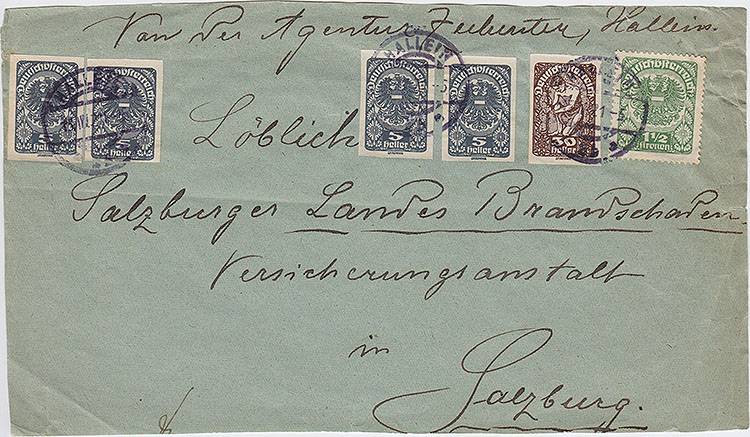 Von der Agentur Zechenter, Hallein.
Deutschösterreich Deutschösterreich Deutschösterreich Deutschösterreich Deutschösterreich Deutschösterreich
HALLEIN
5 heller 5 heller 5 heller 5 heller 30 heller 1½ Kronen
Löblich
Salzburger Landes Brandschaden
Versicherungsanstalt
in
Salzburg.